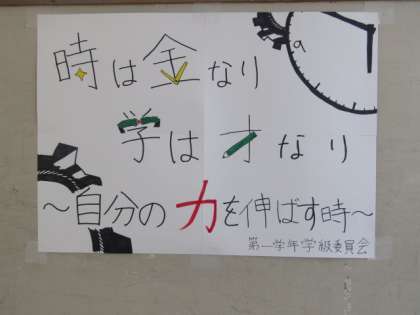 時は金なり
学は才なり
～自分の力を伸ばす時～
第一学年学級委員会